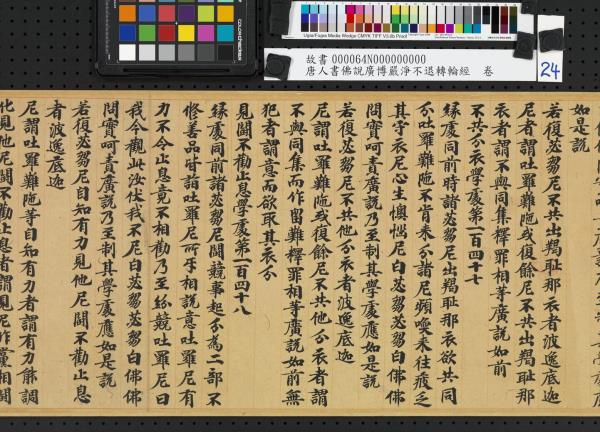 故書 000064N000000000
唐人書佛說廣博嚴淨不退轉輪經 卷
24
如是說
若復苾芻尼不共出羯恥那衣者波逸底迦
尼者謂吐羅難陁或復餘尼不共出羯恥那
衣者謂不與同集釋罪相等廣說如前
不共分衣學處第一百四十七
緣處同前時諸苾芻尼出羯恥那衣欲共同
分吐羅難陁不肯来分諸尼頻喚来往疲乏
其守衣尼心生懊惱尼白苾芻苾芻白佛佛
問實呵責廣說乃至制其學處應如是說
若復苾芻尼不共他分衣者波逸底迦
尼謂吐羅難陁或復餘尼不共他分衣者謂
不與同集而作留難釋罪相等廣說如前無
犯者謂意而欲取其衣分
見鬪不勸止息學處第一百四十八
緣處同前時諸苾芻尼鬪競事起分為二部不
修善品時諸吐羅尼所乎相說意吐羅尼有
力不令止息竟不相勸乃至紛競吐羅尼曰
我今觀此汝伏我不尼白苾芻苾芻白佛佛
問實呵責廣說乃至制其學處應如是說
若復苾芻尼自知有力見他尼鬪不勸止息
者波逸底迦
尼謂吐羅難陁等自知有力者謂有力能調
化見他尼鬪不勸止息者謂見尼作黨相鬪